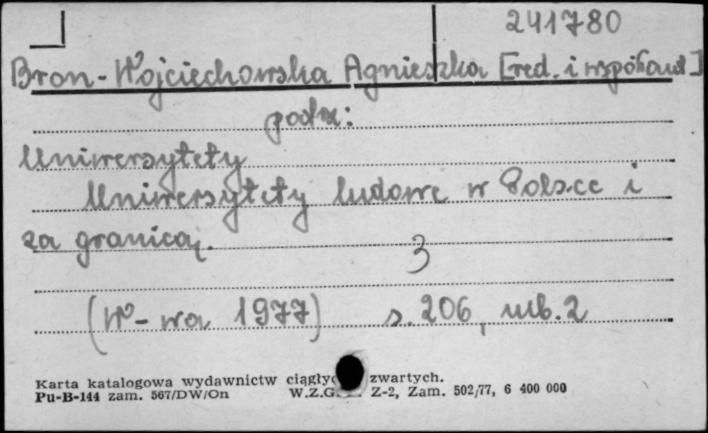 241780
Bron-Wojciechowska Agnieszka [red. i współaut]
patrz:
Uniwersytety
Uniwersytety ludowe w Polsce i
za granicą.
3
(W-wa 1977) s. 206, nlb. 2
Karta katalogowa wydawnictw zwartych.
Pu-B-144 zam. 567/DW/On W.Z.G. Z-2, Zam. 502/77, 6 400 000